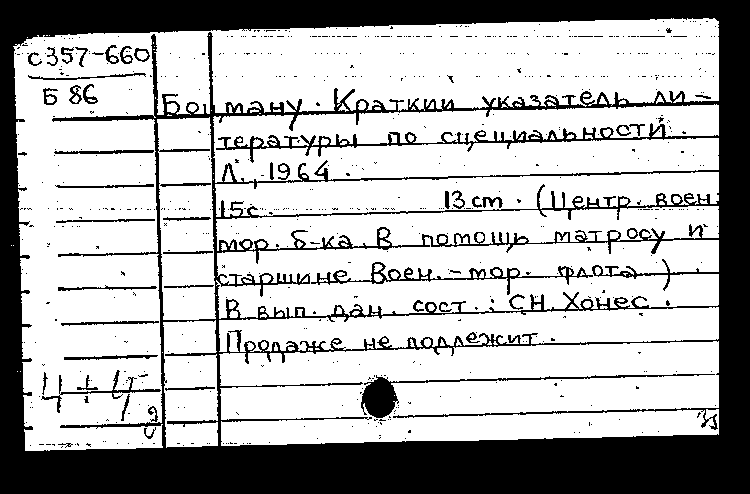 с357-660
Б 86
Боцману. Краткий указатель ли-
тературы по специальности.
Л., 1964.
15с. 13cm. (Центр. воен.
мор. б-ка. В помощь матросу и
старшине Воен.-мор. флота)
В вып. дан. сост.: С.Н. Хонес.
Продаже не подлежит.
4+4